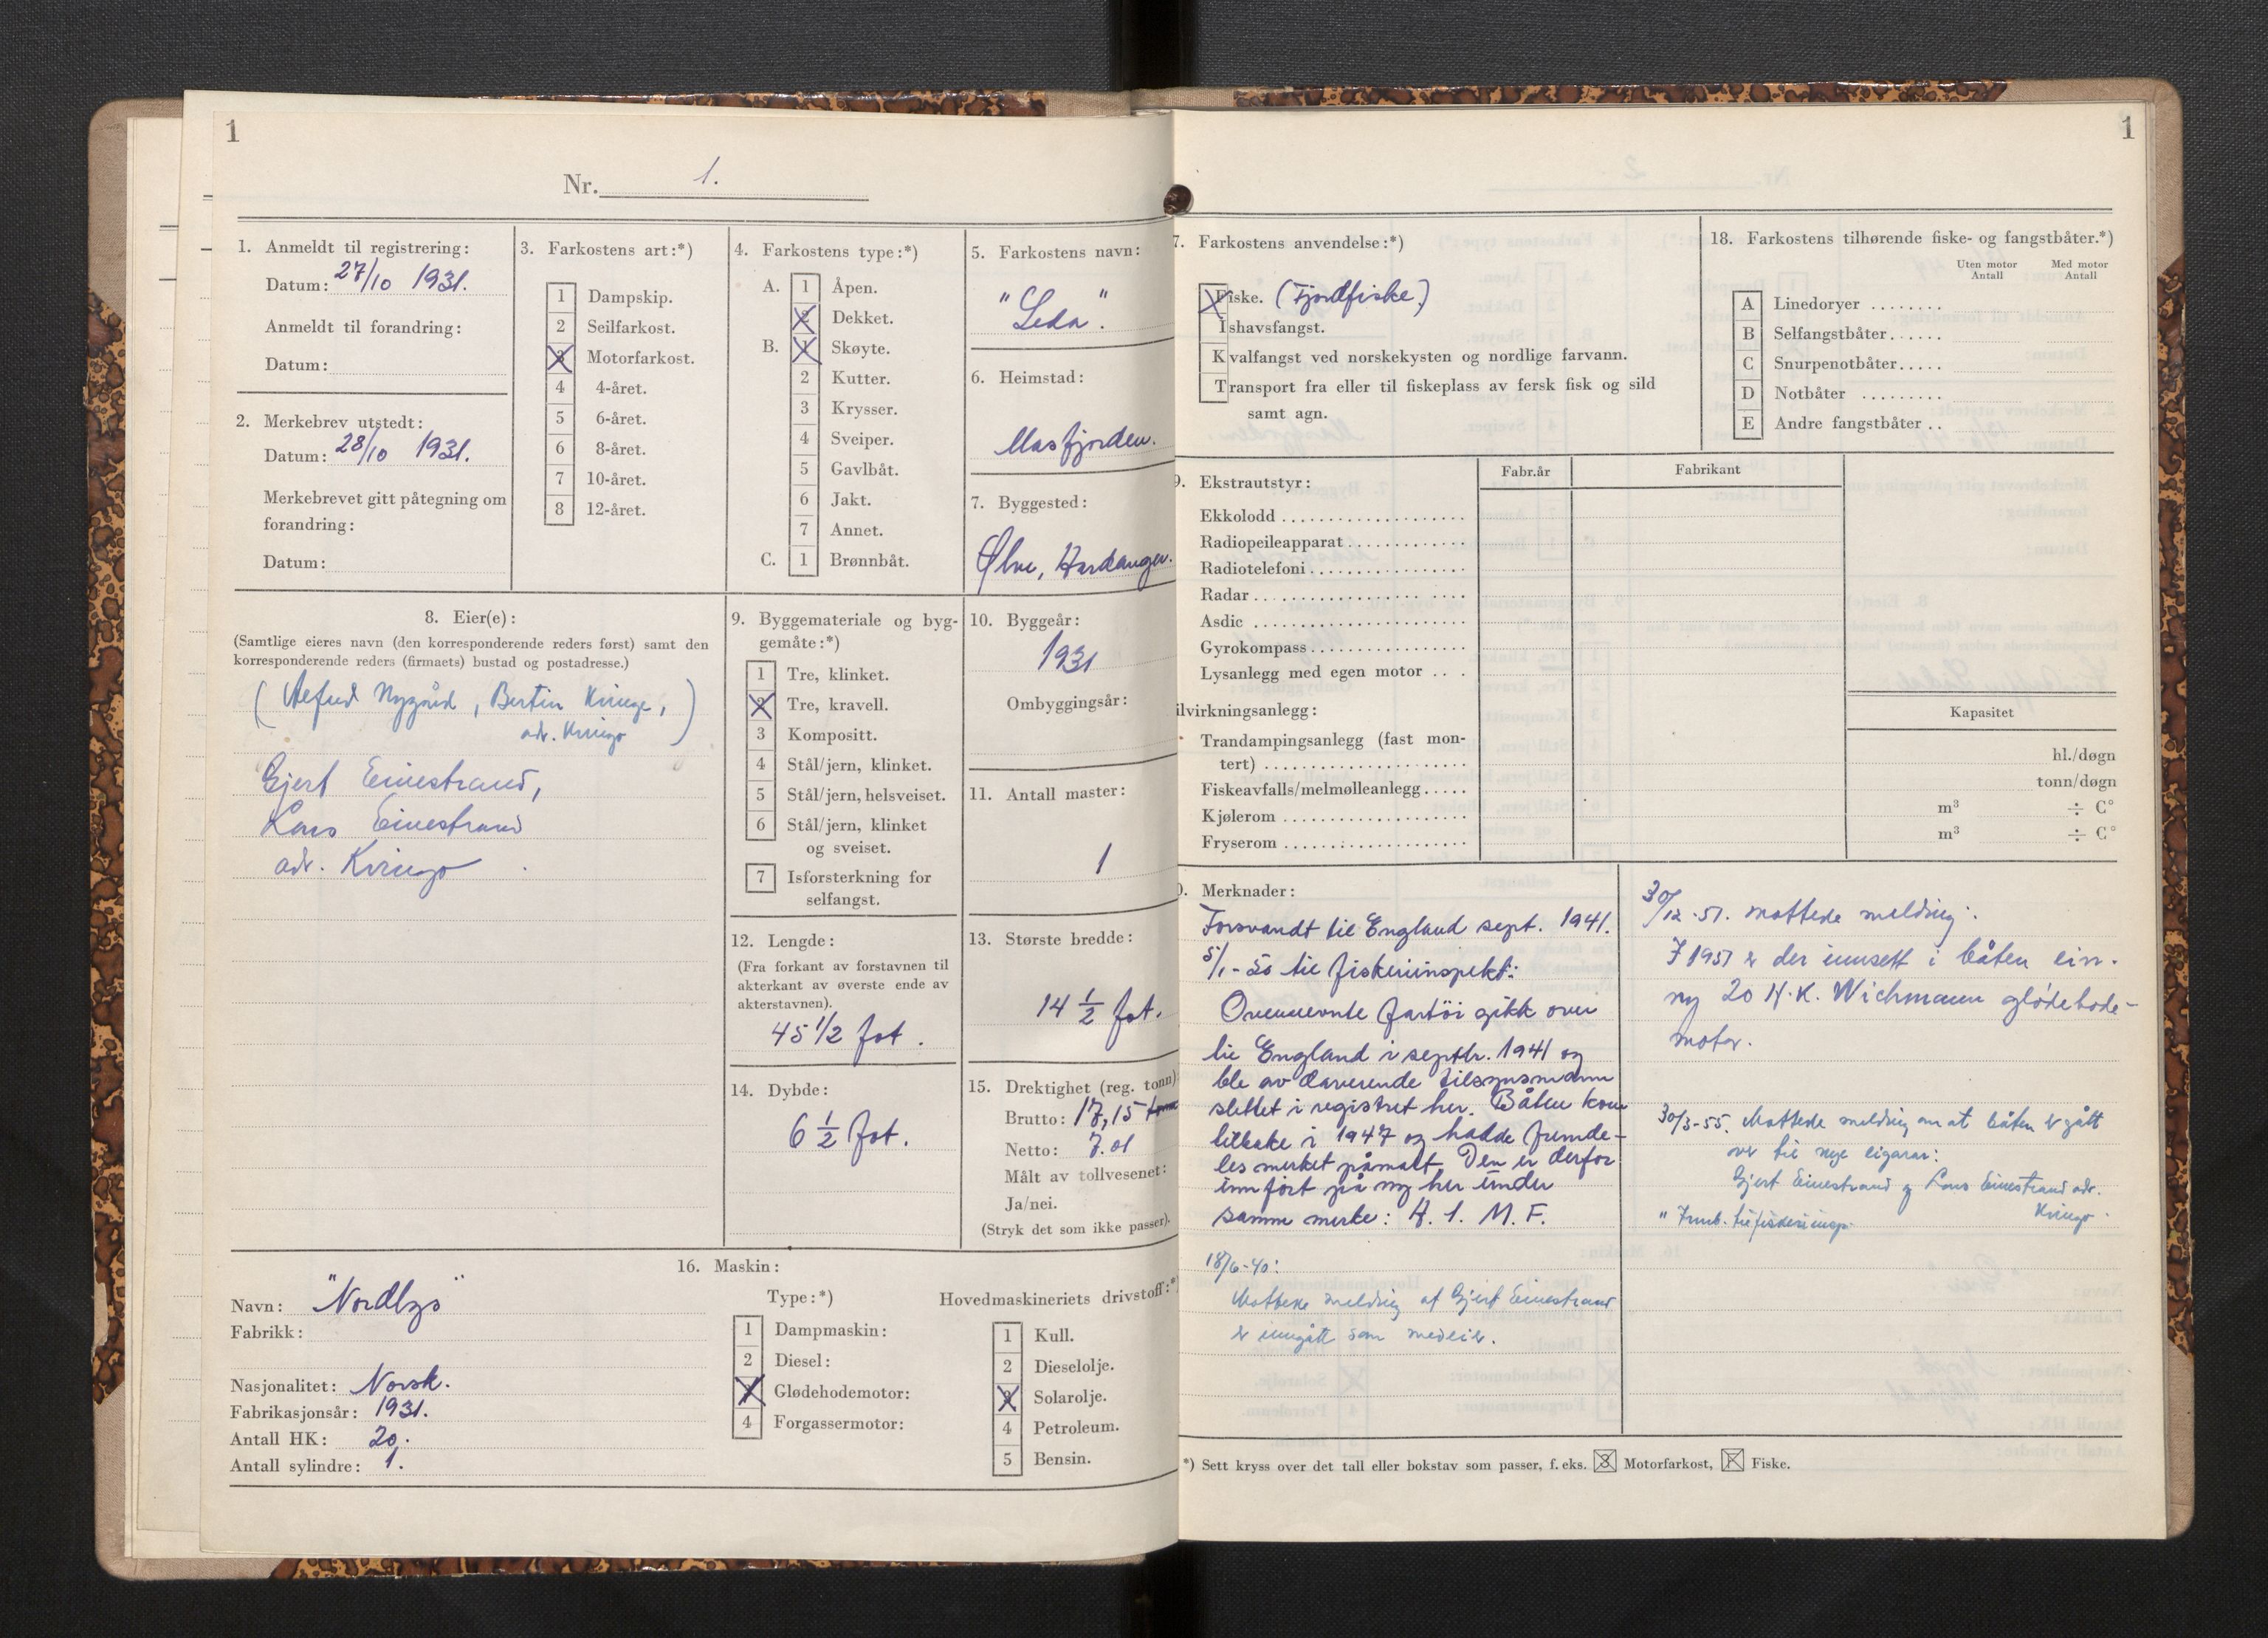 1
Nr. 1.
1. Anmeldt til registrering:
Datum: 27/10 1931.
Anmeldt til forandring:
Datum:
2. Merkebrev utstedt:
Datum: 28/10 1931.
Merkebrevet gitt påtegning om
forandring:
Datum:
3. Farkostens art:*)
1 Dampskip.
2 Seilfarkost.
3 Motorfarkost.
4 4-året.
5 6-året.
6 8-året.
7 10-året.
8 12-året.
4. Farkostens type:*)
A. 1 Åpen.
2 Dekket.
B. 1 Skøyte.
2 Kutter.
3 Krysser.
4 Sveiper.
5 Gavlbåt.
6 Jakt.
7 Annet.
C. 1 Brønnbåt.
5. Farkostens navn:
"Leda".
6. Heimstad:
Masfjorden.
7. Byggested:
Ølve, Hardanger.
8. Eier(e):
(Samtlige eieres navn (den korresponderende reders først) samt den
korresponderende reders (firmaets) bustad og postadresse.)
(Alfred Nygård, Bertin Kvinge,
adr. Kvingo)
Gjert Einestrand,
Lars Einestrand
adr. Kvingo
9. Byggemateriale og byg-
gemåte:*)
1 Tre, klinket.
2 Tre, kravell.
3 Kompositt.
4 Stål/jern, klinket.
5 Stål/jern, helsveiset.
6 Stål/jern, klinket
og sveiset.
7 Isforsterkning for
selfangst.
10. Byggeår:
1931
Ombyggingsår:
11. Antall master:
1
12. Lengde:
(Fra forkant av forstavnen til
akterkant av øverste ende av
akterstavnen).
45 1/2 fot.
13. Største bredde:
14 1/2 fot.
14. Dybde:
6 1/2 fot.
15. Drektighet (reg. tonn)
Brutto: 17,15 tonn
Netto: 7.01
Målt av tollvesenet:
Ja/nei.
(Stryk det som ikke passer).
16. Maskin:
Navn: "Nordlys"
Fabrikk:
Nasjonalitet: Norsk.
Fabrikasjonsår: 1931.
Antall HK: 20.
Antall sylindre: 1.
Type:*)
1 Dampmaskin:
2 Diesel:
3 Glødehodemotor:
4 Forgassermotor:
Hovedmaskineriets drivstoff:*)
1 Kull.
2 Dieselolje.
3 Solarolje.
4 Petroleum.
5 Bensin.
1
7. Farkostens anvendelse:*)
Fiske. (Fjordfiske.)
Ishavsfangst.
Kvalfangst ved norskekysten og nordlige farvann.
Transport fra eller til fiskeplass av fersk fisk og sild
samt agn.
18. Farkostens tilhørende fiske- og fangstbåter.*)
Uten motor Antall
Med motor Antall
A Linedoryer ........
B Selfangstbåter......
C Snurpenotbåter.....
D Notbåter .........
E Andre fangstbåter ..
9. Ekstrautstyr:
Fabr.år
Fabrikant
Ekkolodd
Radiopeileapparat
Radiotelefoni
Radar
Asdic
Gyrokompass
Lysanlegg med egen motor ....
ilvirkningsanlegg:
Kapasitet
Trandampingsanlegg (fast mon-
tert) hl./døgn
Fiskeavfalls/melmølleanlegg..... tonn/døgn
Kjølerom m³ ÷ C°
Fryserom m³ ÷ C°
0. Merknader:
Forsvandt til England sept. 1941.
5/1-50 til fiskeriinspekt:
Ovennevnte fartöi gikk over
til England i septbr. 1941 og
ble av daverende tilsynsmann
slettet i registret her. Båten kom
tilbake i 1947 og hadde fremde-
les merket påmalt. Den er derfor
innfört på ny her under
samme merke: H. 1. M. F.
18/6-40:
Mottske melding at Gjert Einestrand
er inngått som medeier.
30/12-51. mottede melding:
I 1951 er der innsett i båten ein
ny 20 H.K. Wichmann glödehode-
motor.
30/3-55. Mottede melding om at båten er gått
over til nye eigarar:
Gjert Einestrand og Lars Einestrand adr.
Kvingo.
" Innb. til fiskeriinsp.
*) Sett kryss over det tall eller bokstav som passer, f. eks. 3 Motorfarkost, F Fiske.